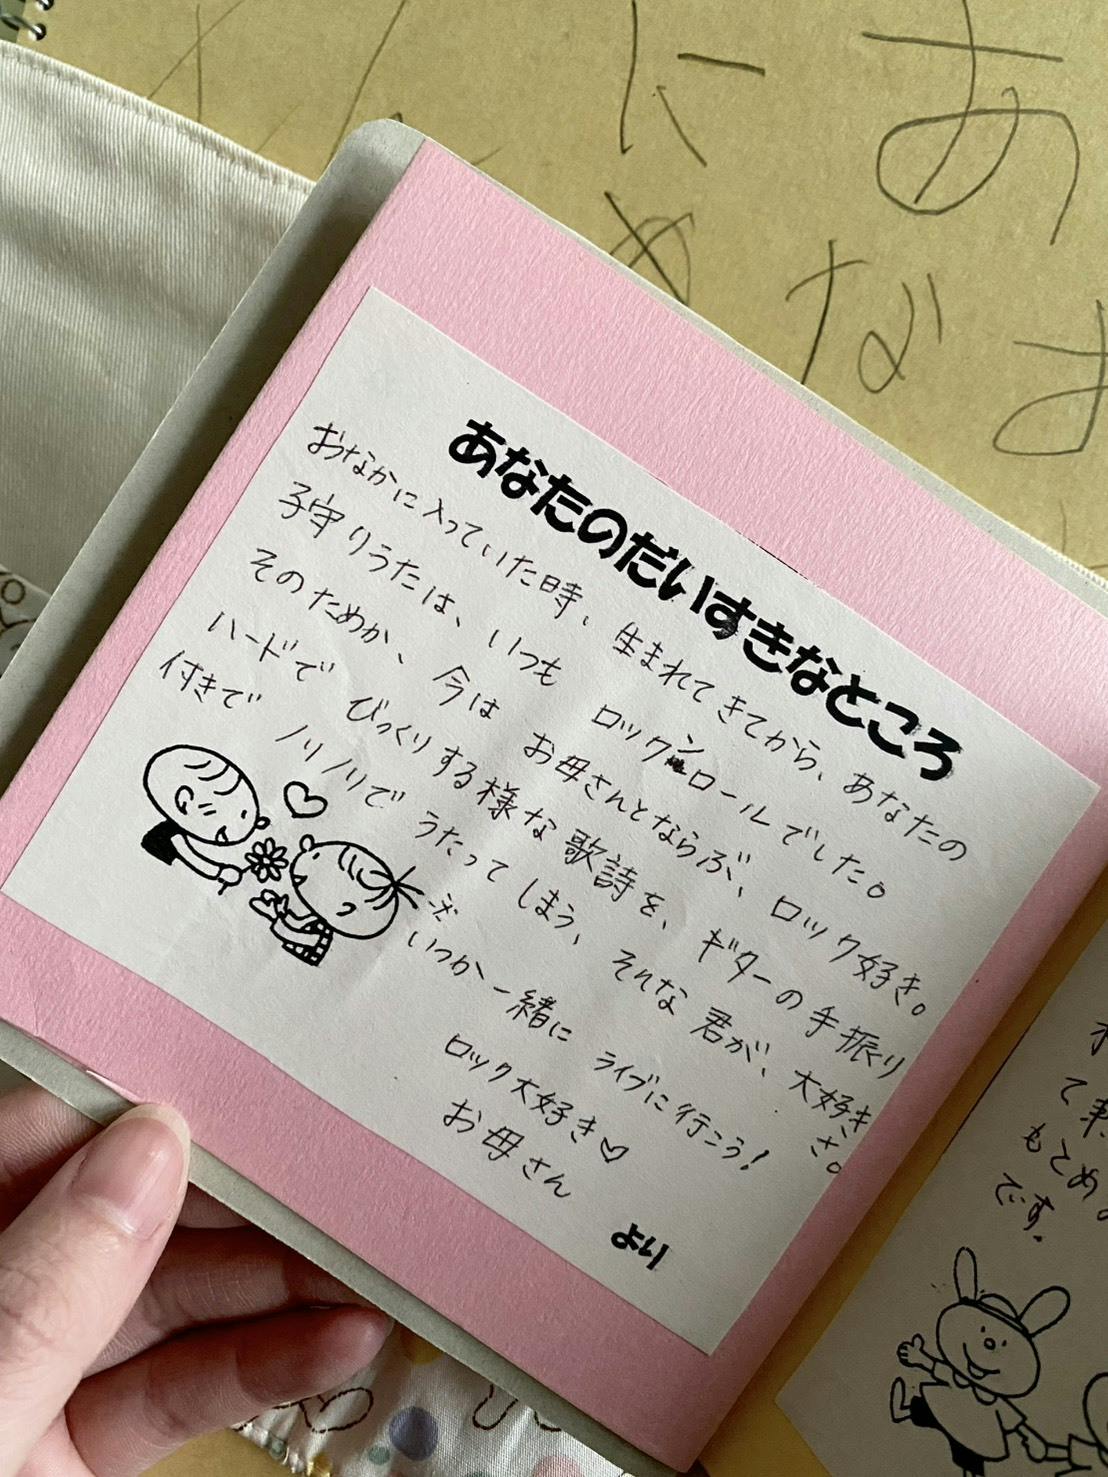 に お
め な お
あなたのだいすきなところ
おなかに入っていた時、生まれてきてから、あなたの
子守りうたは、いつも ロックンロールでした。
そのためか、今は お母さんとならぶ、ロック好き。
ハードで びっくりする様な歌詩を、ギターの手振り
付きで ノリノリで うたって しまう、そんな 君が、大好き
さ。
いつか 一緒に ライブに行こう!
ロック大好き♡
お母さん
より
て
もとめ
です。